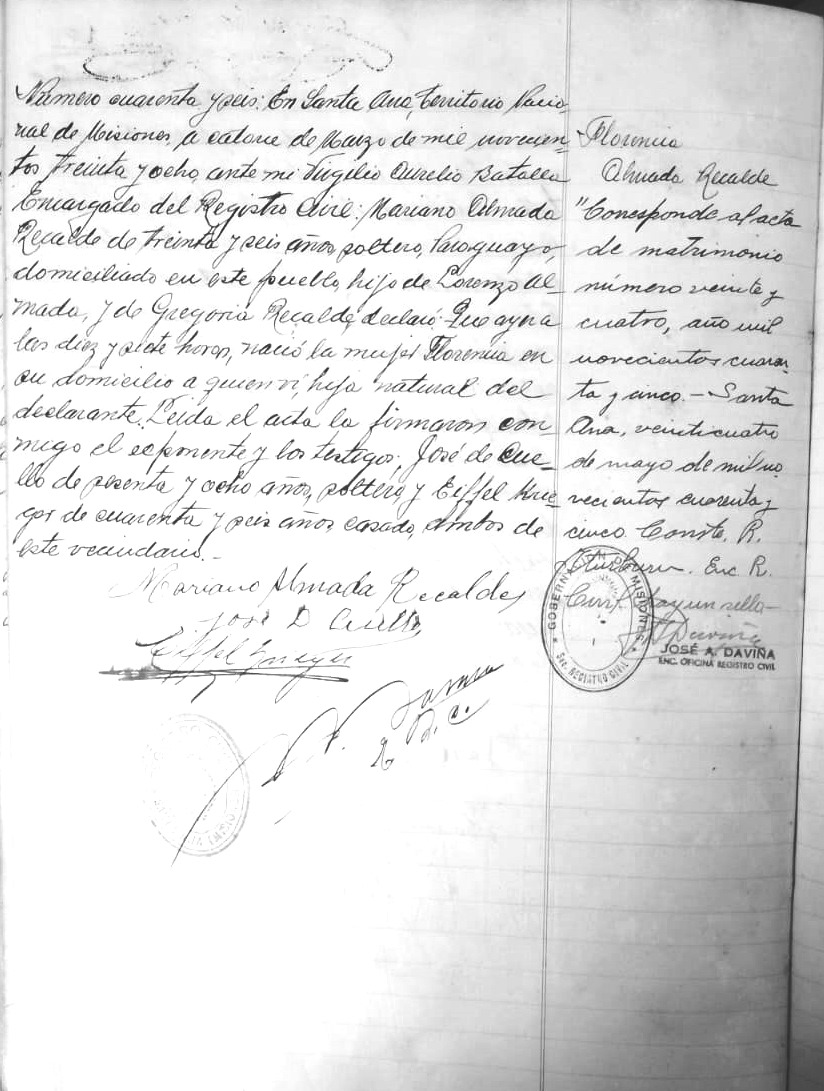 Número cuarenta y seis: En Santa Ana, Territorio Nacio-
nal de Misiones, a catorce de Marzo de mil novecien-
tos treinta y ocho, ante mi Virgilio Aurelio Batalla
Encargado del Registro Civil: Mariano Almada
Recalde de treinta y seis años, soltero, Paraguayo,
domiciliado en este pueblo, hijo de Lorenzo Al-
mada, y de Gregoria Recalde, declaró: Que ayer a
las diez y siete horas, nació la mujer Florencia en
su domicilio a quien ví, hija natural del
declarante. Leida el acta la firmaron con-
migo el exponente y los testigos; José de Cue-
llo de sesenta y ocho años, soltero, y Eiffel Krie-
ger de cuarenta y seis años, casado, ambos de
este vecindario.-
Mariano Almada Recalde
José D Cuello
Eiffel
E. R. C.
Florencia
Almada Recalde
"Corresponde al acta
de matrimonio
número veinte y
cuatro, año mil
novecientos cuaren-
ta y cinco.- Santa
Ana, veinticuatro
de mayo de mil no-
vecientos cuarenta y
cinco. Conste. R.
Enc. R.
Civil
GOBERNACION DE MISIONES
Sec. REGISTRO CIVIL
JOSÉ A. DAVIÑA
ENC. OFICINA REGISTRO CIVIL